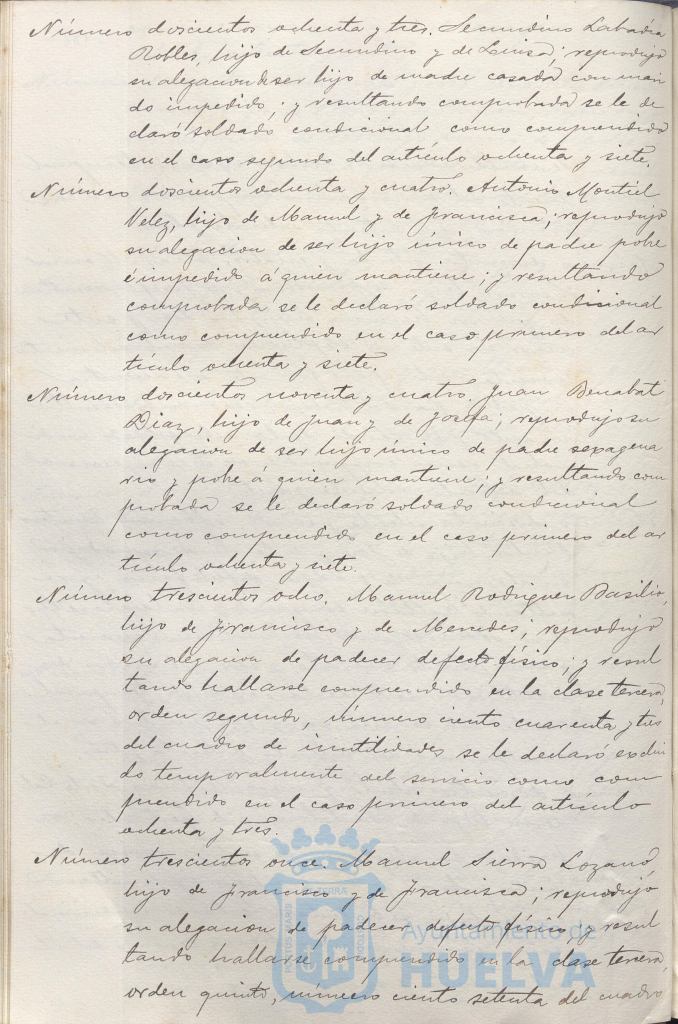 Número doscientos ochenta y tres. Secundino Labadía
Robles, hijo de Secundino y de Luisa; reprodujo
su alegacion de ser hijo de madre casada con mari
do impedido; y resultando comprobada se le de
claró soldado condicional como comprendido
en el caso segundo del artículo ochenta y siete.
Número doscientos ochenta y cuatro. Antonio Montiel
Velez, hijo de Manuel y de Francisca; reprodujo
su alegacion de ser hijo único de padre pobre
é impedido á quien mantiene; y resultando
comprobada se le declaró soldado condicional
como comprendido en el caso primero del ar
tículo ochenta y siete.
Número doscientos noventa y cuatro. Juan Benabat
Diaz, hijo de Juan y de Josefa; reprodujo su
alegacion de ser hijo único de padre sexagena
rio y pobre á quien mantiene; y resultando com
probada se le declaró soldado condicional
como comprendido en el caso primero del ar
tículo ochenta y siete.
Número trescientos ocho. Manuel Rodriguez Basilio,
hijo de Francisco y de Mercedes; reprodujo
su alegacion de padecer defecto físico; y resul
tando hallarse comprendido en la clase tercera,
orden segundo, número ciento cuarenta y tres
del cuadro de inutilidades se le declaró exclui
do temporalmente del servicio como com
prendido en el caso primero del artículo
ochenta y tres.
Número trescientos once. Manuel Sierra Lozano,
hijo de Francisco y de Francisca; reprodujo
su alegacion de padecer defecto físico y resul
tando hallarse comprendido en la clase tercera,
orden quinto, número ciento setenta del cuadro
Ayuntamiento de
HUELVA